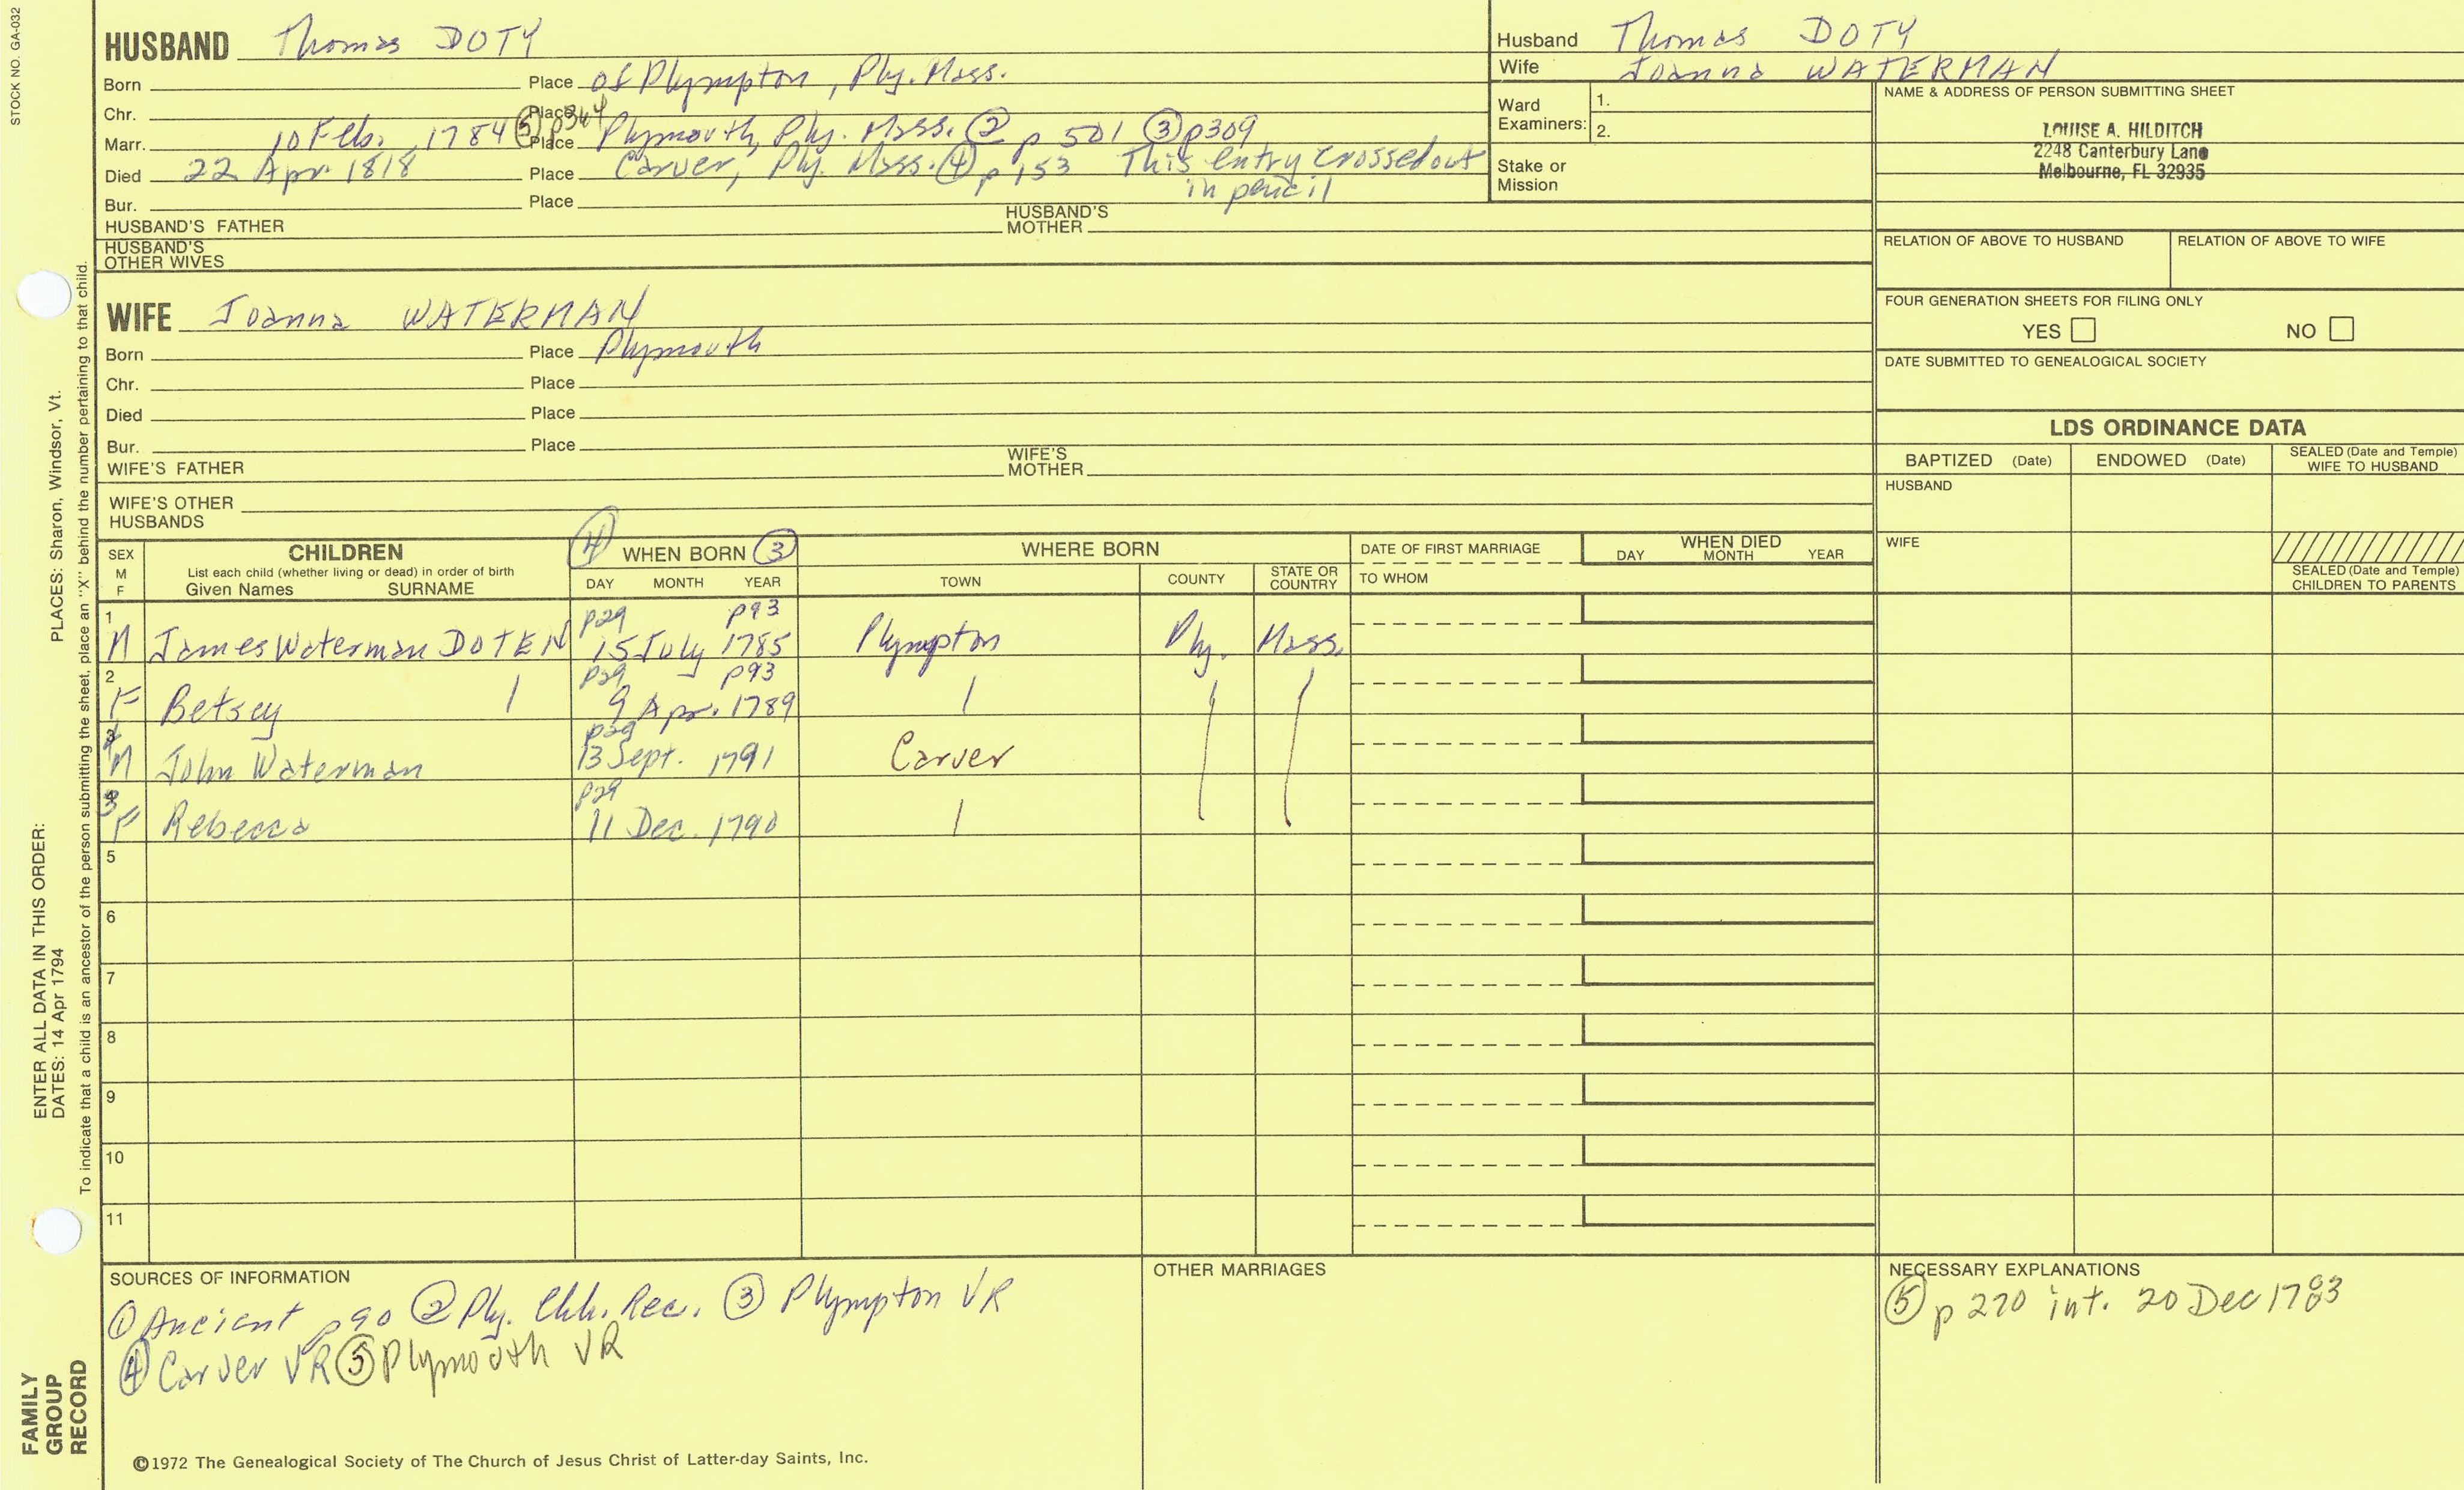 STOCK NO. GA-032
HUSBAND Thomas DOTY
Born Place of Plympton, Ply. Mass.
Chr. Place
Marr. 10 Feb. 1784 ⑤ p364 Place Plymouth, Ply. Mass. ② p 501 ③ p309
Died 22 Apr. 1818 Place Carver, Ply. Mass. ④ p 153 This entry crossed out
in pencil
Bur. Place
HUSBAND'S FATHER HUSBAND'S MOTHER
HUSBAND'S OTHER WIVES
Husband Thomas DOTY
Wife Joanna WATERMAN
Ward Examiners: 1.
2.
Stake or Mission
NAME & ADDRESS OF PERSON SUBMITTING SHEET
LOUISE A. HILDITCH
2248 Canterbury Lane
Melbourne, FL 32935
RELATION OF ABOVE TO HUSBAND RELATION OF ABOVE TO WIFE
FOUR GENERATION SHEETS FOR FILING ONLY
YES NO
DATE SUBMITTED TO GENEALOGICAL SOCIETY
WIFE Joanna WATERMAN
Born Place Plymouth
Chr. Place
Died Place
Bur. Place
WIFE'S FATHER WIFE'S MOTHER
WIFE'S OTHER HUSBANDS
LDS ORDINANCE DATA
BAPTIZED (Date) ENDOWED (Date) SEALED (Date and Temple) WIFE TO HUSBAND
HUSBAND
WIFE
SEALED (Date and Temple) CHILDREN TO PARENTS
SEX M F
CHILDREN
List each child (whether living or dead) in order of birth
Given Names SURNAME
④ WHEN BORN ③
DAY MONTH YEAR
WHERE BORN
TOWN COUNTY STATE OR COUNTRY
DATE OF FIRST MARRIAGE
TO WHOM
WHEN DIED
DAY MONTH YEAR
1 p29 p93
M James Waterman DOTEN 15 July 1785 Plympton Ply. Mass.
2 p29 p93
F Betsey 9 Apr. 1789
p29
M John Waterman 13 Sept. 1791 Carver
3 p29
F Rebecca 11 Dec. 1790
5
6
7
8
9
10
11
SOURCES OF INFORMATION
① Ancient p90 ② Ply. Chh. Rec. ③ Plympton VR
④ Carver VR ⑤ Plymouth VR
OTHER MARRIAGES
NECESSARY EXPLANATIONS
⑤ p 270 int. 20 Dec 1783
©1972 The Genealogical Society of The Church of Jesus Christ of Latter-day Saints, Inc.
FAMILY GROUP RECORD
ENTER ALL DATA IN THIS ORDER:
DATES: 14 Apr 1794 PLACES: Sharon, Windsor, Vt.
To indicate that a child is an ancestor of the person submitting the sheet, place an "X" behind the number pertaining to that child.